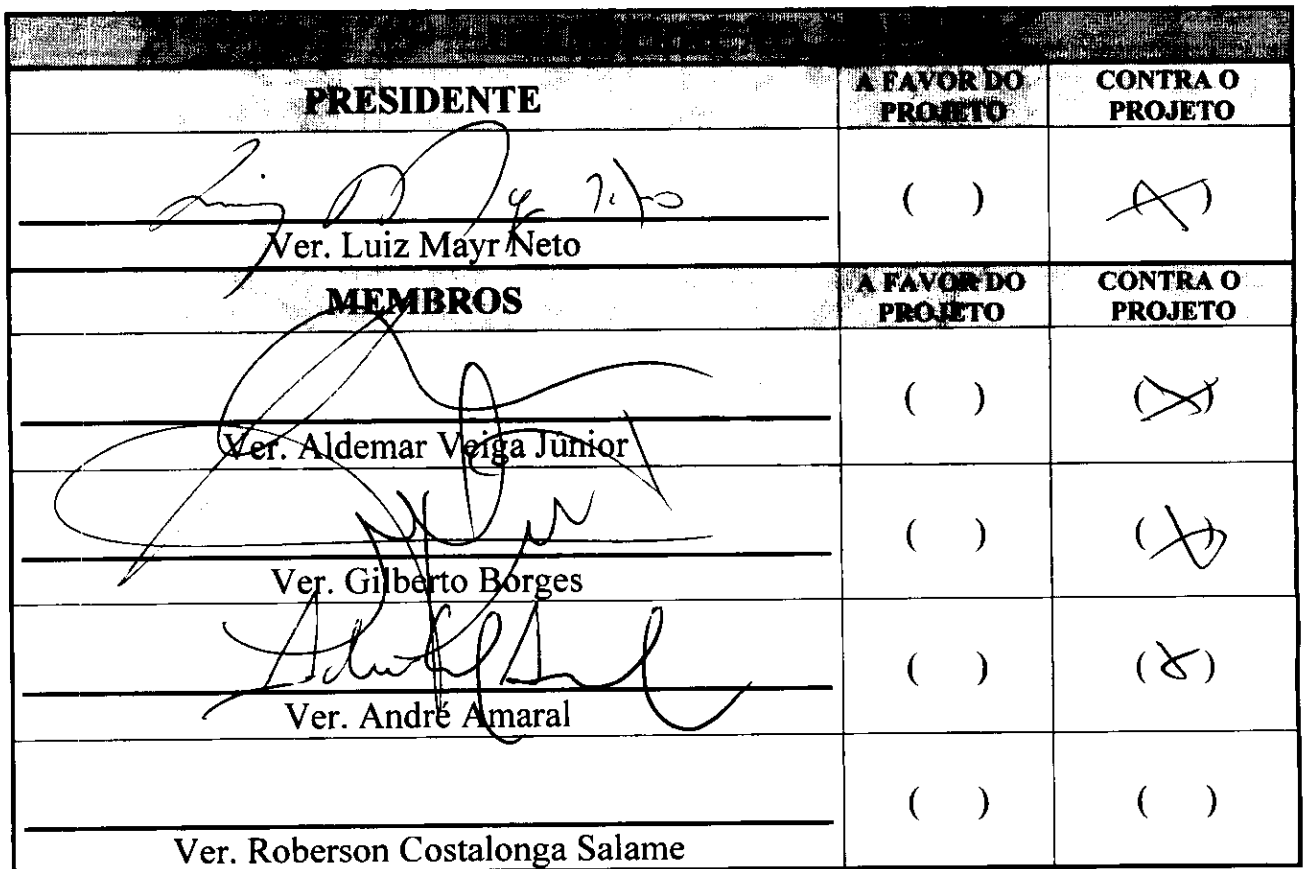 PRESIDENTE
A FAVOR DO PROJETO
CONTRA O PROJETO
( )
(X)
Ver. Luiz Mayr Neto
MEMBROS
A FAVOR DO PROJETO
CONTRA O PROJETO
( )
(X)
Ver. Aldemar Veiga Júnior
( )
(X)
Ver. Gilberto Borges
( )
(X)
Ver. André Amaral
( )
( )
Ver. Roberson Costalonga Salame